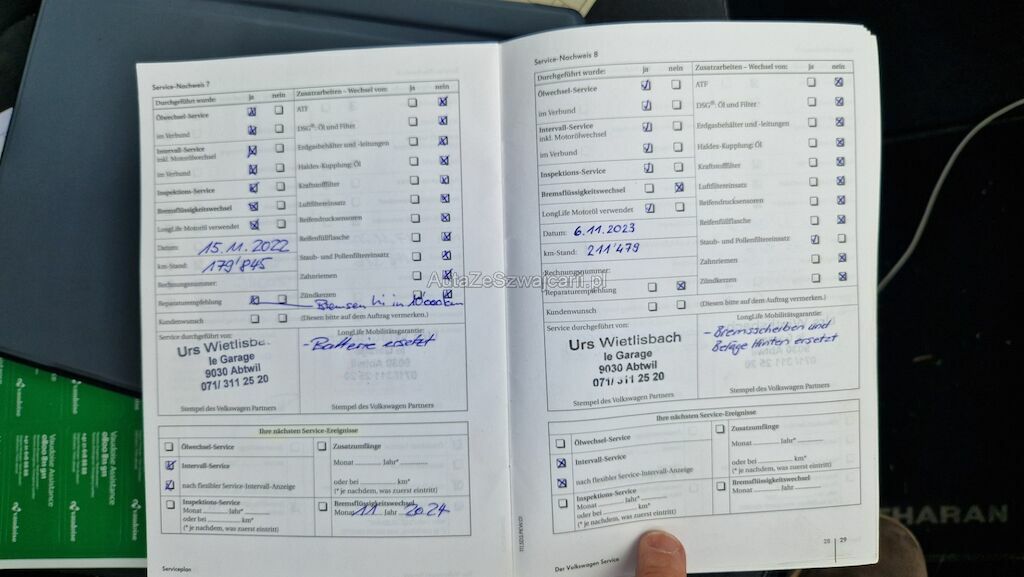 Service-Nachweis 7
Durchgeführt wurde: ja nein Zusatzarbeiten – Wechsel von: ja nein
Ölwechsel-Service ATF
im Verbund DSG®: Öl und Filter
Intervall-Service Erdgasbehälter und -leitungen
inkl. Motorölwechsel
im Verbund Haldex-Kupplung: Öl
Inspektions-Service Kraftstofffilter
Bremsflüssigkeitswechsel Luftfiltereinsatz
LongLife Motoröl verwendet Reifendrucksensoren
Datum: 15.11.2022 Reifenfüllflasche
km-Stand: 179'845 Staub- und Pollenfiltereinsatz
Rechnungsnummer: Zahnriemen
Zündkerzen
Reparaturempfehlung Bremsen hi in 10'000km
Kundenwunsch (Diesen bitte auf dem Auftrag vermerken.)
Service durchgeführt von: LongLife Mobilitätsgarantie:
Urs Wietlisba - Batterie ersetzt
le Garage
9030 Abtwil
071/ 311 25 20
Stempel des Volkswagen Partners Stempel des Volkswagen Partners
Ihre nächsten Service-Ereignisse
Ölwechsel-Service Zusatzumfänge
Intervall-Service Monat Jahr*
nach flexibler Service-Intervall-Anzeige oder bei km*
(* je nachdem, was zuerst eintritt)
Inspektions-Service Bremsflüssigkeitswechsel
Monat Jahr* Monat 11 Jahr 2024
oder bei km*
(* je nachdem, was zuerst eintritt)
Serviceplan
Service-Nachweis 8
Durchgeführt wurde: ja nein Zusatzarbeiten – Wechsel von: ja nein
Ölwechsel-Service ATF
im Verbund DSG®: Öl und Filter
Intervall-Service Erdgasbehälter und -leitungen
inkl. Motorölwechsel
im Verbund Haldex-Kupplung: Öl
Inspektions-Service Kraftstofffilter
Bremsflüssigkeitswechsel Luftfiltereinsatz
LongLife Motoröl verwendet Reifendrucksensoren
Datum: 6.11.2023 Reifenfüllflasche
km-Stand: 211'479 Staub- und Pollenfiltereinsatz
Rechnungsnummer: Zahnriemen
Reparaturempfehlung Zündkerzen
Kundenwunsch (Diesen bitte auf dem Auftrag vermerken.)
Service durchgeführt von: LongLife Mobilitätsgarantie:
Urs Wietlisbach - Bremsscheiben und
le Garage Beläge hinten ersetzt
9030 Abtwil
071/ 311 25 20
Stempel des Volkswagen Partners Stempel des Volkswagen Partners
Ihre nächsten Service-Ereignisse
Ölwechsel-Service Zusatzumfänge
Intervall-Service Monat Jahr*
nach flexibler Service-Intervall-Anzeige oder bei km*
(* je nachdem, was zuerst eintritt)
Inspektions-Service Bremsflüssigkeitswechsel
Monat Jahr* Monat Jahr
oder bei km*
(* je nachdem, was zuerst eintritt)
28 29
Der Volkswagen Service
AutaZeSzwajcarii.pl
Vaudoise Assistance
vaudoise
HARAN